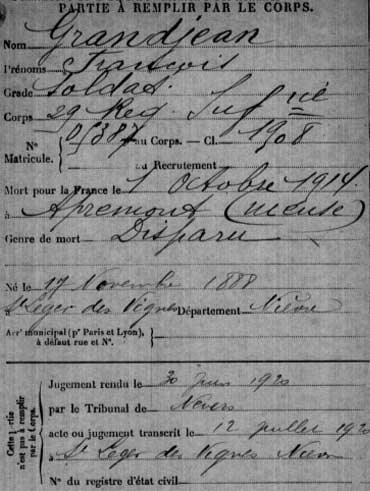 PARTIE À REMPLIR PAR LE CORPS.
Nom Grandjean
Prénoms François
Grade Soldat
Corps 29 Reg. Inf rie
N° Matricule. { 05387 au Corps. — Cl. 1908
au Recrutement
Mort pour la France le 1 Octobre 1914
à Apremont (Meuse)
Genre de mort Disparu
Né le 17 Novembre 1888
à St Leger des Vignes Département Nièvre
Arrt municipal (pr Paris et Lyon),
à défaut rue et N°.
Cette partie n'est pas à remplir par le Corps.
Jugement rendu le 30 juin 1920
par le Tribunal de Nevers
acte ou jugement transcrit le 12 juillet 1920
à St Leger des Vignes Nièvre
N° du registre d'état civil